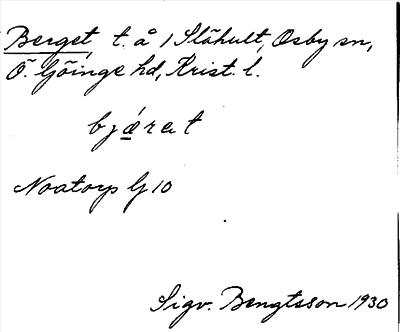 Berget, t. å 1 Slähult, Osby sn,
Ö. Göinge hd, Krist. l.
bjǽrat
Noatorp G 10
Sigv. Bengtsson 1930